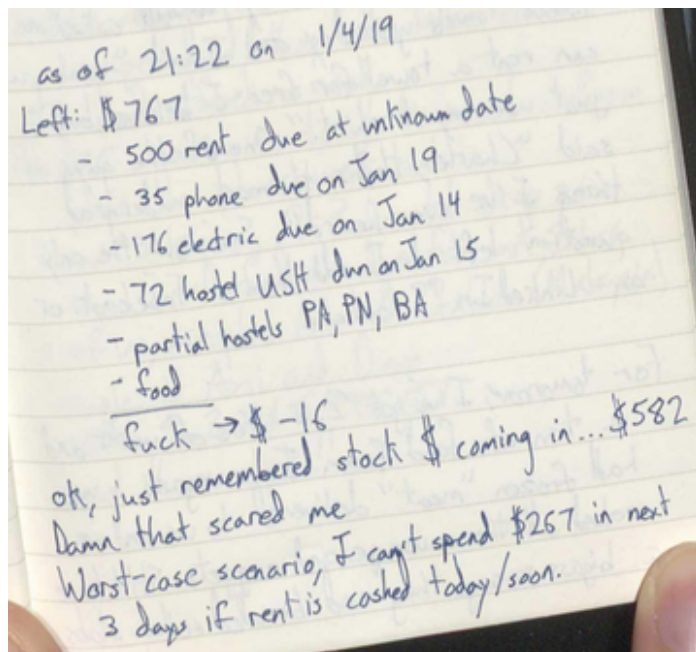 as of 21:22 on 1/4/19
Left: $767
- 500 rent due at unknown date
- 35 phone due on Jan 19
- 176 electric due on Jan 14
- 72 hostel USH due on Jan 15
- partial hostels PA, PN, BA
- food
fuck → $ -16
ok, just remembered stock $ coming in... $582
Damn that scared me
Worst-case scenario, I can't spend $267 in next
3 days if rent is cashed today/soon.